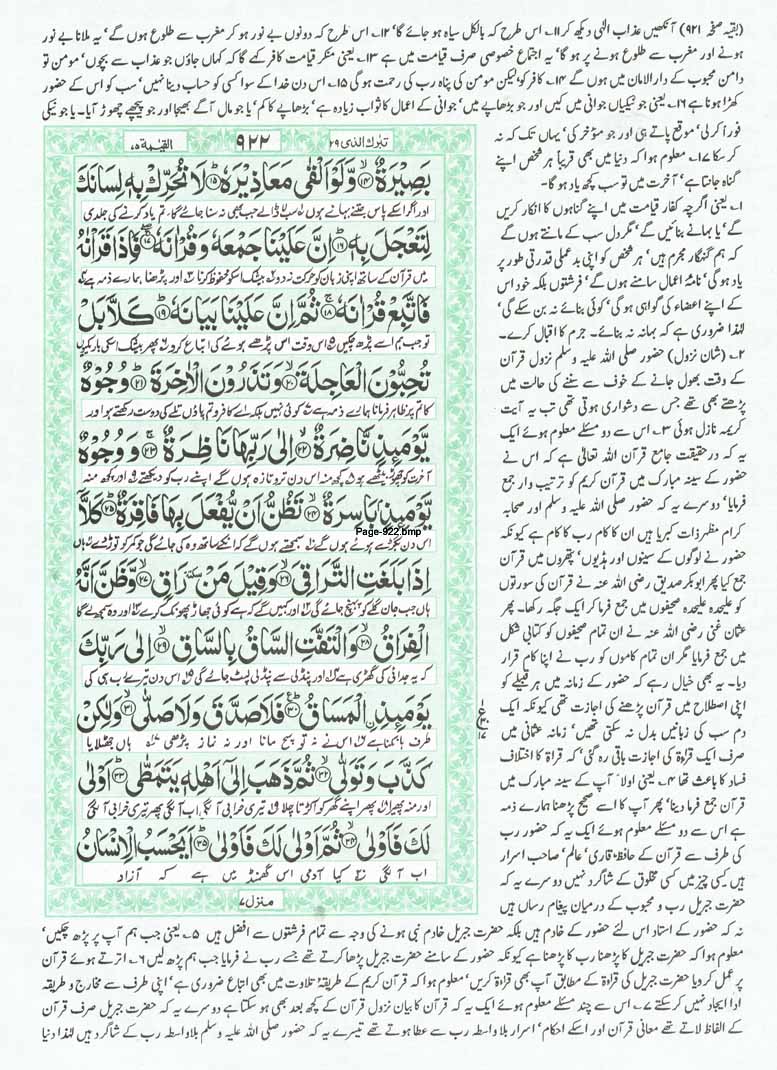 (بقیہ صفحہ ۹۲۱) آنکھیں عذاب الٰہی دیکھ کر ۱۱۔ اس طرح کہ بالکل سیاہ ہو جائے گا' ۱۲۔ اس طرح کہ دونوں بے نور ہو کر مغرب سے طلوع ہوں گے' یہ ملانا بے نور
ہونے اور مغرب سے طلوع ہونے پر ہو گا' یہ اجتماع خصوصی صرف قیامت میں ہے ۱۳۔ یعنی منکر قیامت کافر کہے گا کہ کہاں جاؤں جو عذاب سے بچوں' مومن تو
دامن محبوب کے دارالامان میں ہوں گے ۱۴۔ کافر کو' لیکن مومن کی پناہ رب کی رحمت ہو گی ۱۵۔ اس دن خدا کے سوا کسی کو حساب دینا نہیں' سب کو اس کے حضور
کھڑا ہونا ہے ۱۶۔ یعنی جو نیکیاں جوانی میں کیں اور جو بڑھاپے میں' جوانی کے اعمال کا ثواب زیادہ ہے' بڑھاپے کا کم' یا جو مال آگے بھیجا اور جو پیچھے چھوڑ آیا۔ یا جو نیکی
فوراً کر لی' موقع پاتے ہی اور جو مؤخر کی' یہاں تک کہ نہ
کر سکا ۱۷۔ معلوم ہوا کہ دنیا میں بھی قریباً ہر شخص اپنے
گناہ جانتا ہے' آخرت میں تو سب کچھ یاد ہو گا۔
۱۔ یعنی اگرچہ کفار قیامت میں اپنے گناہوں کا انکار کریں
گے' یا بہانے بنائیں گے' مگر دل سب کے مانتے ہوں گے
کہ ہم گنہگار مجرم ہیں' ہر شخص کو اپنی بد عملی قدرتی طور پر
یاد ہو گی' نامۂ اعمال سامنے ہوں گے' فرشتوں بلکہ خود اس
کے اپنے اعضاء کی گواہی ہو گی' کوئی بنائے نہ بن سکے گی'
لہٰذا ضروری ہے کہ بہانہ نہ بنائے۔ جرم کا اقبال کرے۔
۲۔ (شان نزول) حضور صلی اللہ علیہ وسلم نزول قرآن
کے وقت بھول جانے کے خوف سے سننے کی حالت میں
پڑھتے بھی تھے جس سے دشواری ہوتی تھی تب یہ آیت
کریمہ نازل ہوئی ۳۔ اس سے دو مسئلے معلوم ہوئے ایک
یہ کہ درحقیقت جامع قرآن اللہ تعالٰی ہے کہ اس نے
حضور کے سینہ مبارک میں قرآن کریم کو ترتیب وار جمع
فرمایا' دوسرے یہ کہ حضور صلی اللہ علیہ وسلم اور صحابہ
کرام مظہر ذات کبریا ہیں ان کا کام رب کا کام ہے کیونکہ
حضور نے لوگوں کے سینوں اور ہڈیوں' پتھروں میں قرآن
جمع کیا پھر ابوبکر صدیق رضی اللہ عنہ نے قرآن کی سورتوں
کو علیحدہ علیحدہ صحیفوں میں جمع فرما کر ایک جگہ رکھا۔ پھر
عثمان غنی رضی اللہ عنہ نے ان تمام صحیفوں کو کتابی شکل
میں جمع فرمایا مگر ان تمام کاموں کو رب نے اپنا کام قرار
دیا۔ یہ بھی خیال رہے کہ حضور کے زمانہ میں ہر قبیلے کو
اپنی اصطلاح میں قرآن پڑھنے کی اجازت تھی کیونکہ ایک
دم سب کی زبانیں بدل نہ سکتی تھیں' زمانہ عثمانی میں
صرف ایک قراءۃ کی اجازت باقی رہ گئی' کہ قراۃ کا اختلاف
فساد کا باعث تھا ۴۔ یعنی اولاً آپ کے سینہ مبارک میں
قرآن جمع فرما دینا' پھر آپ کا اسے صحیح پڑھنا ہمارے ذمہ
ہے اس سے دو مسئلے معلوم ہوئے ایک یہ کہ حضور رب
کی طرف سے قرآن کے حافظ' قاری' عالم' صاحب اسرار
ہیں کسی چیز میں کسی مخلوق کے شاگرد نہیں دوسرے یہ کہ
حضرت جبریل رب و محبوب کے درمیان پیغام رساں ہیں
تبٰرک الذی ۲۹ ۹۲۲ القیٰمۃ ۷۵
بَصِيْرَةٌ ۙ۝۱۴ وَّلَوْ اَلْقٰى مَعَاذِيْرَهٗ ؕ۝۱۵ لَا تُحَرِّكْ بِهٖ لِسَانَكَ
اور اگر اسکے پاس جتنے بہانے ہوں سب لا ڈالے جب بھی نہ سنا جائے گا تم یاد کرنے کی جلدی
لِتَعْجَلَ بِهٖ ؕ۝۱۶ اِنَّ عَلَيْنَا جَمْعَهٗ وَقُرْاٰنَهٗ ۚ۝۱۷ فَاِذَا قَرَاْنٰهُ
میں قرآن کے ساتھ اپنی زبان کو حرکت نہ دو بیشک اسکا محفوظ کرنا اور پڑھنا ہمارے ذمہ ہے
فَاتَّبِعْ قُرْاٰنَهٗ ۚ۝۱۸ ثُمَّ اِنَّ عَلَيْنَا بَيَانَهٗ ؕ۝۱۹ كَلَّا بَلْ
تو جب ہم اسے پڑھ چکیں اس وقت اس پڑھے ہوئے کی اتباع کرو پھر بیشک اسکی باریکیوں
تُحِبُّوْنَ الْعَاجِلَةَ ۙ۝۲۰ وَتَذَرُوْنَ الْاٰخِرَةَ ؕ۝۲۱ وُجُوْهٌ
کا تم پر ظاہر فرمانا ہمارے ذمہ ہے کوئی نہیں بلکہ اے کافرو تم پاؤں تلے کی دوست رکھتے ہو اور
يَّوْمَئِذٍ نَّاضِرَةٌ ۙ۝۲۲ اِلٰى رَبِّهَا نَاظِرَةٌ ۚ۝۲۳ وَوُجُوْهٌ
آخرت کو چھوڑ بیٹھے ہو کچھ منہ اس دن تروتازہ ہوں گے اپنے رب کو دیکھتے اور کچھ منہ
يَّوْمَئِذٍۭ بَاسِرَةٌ ۙ۝۲۴ تَظُنُّ اَنْ يُّفْعَلَ بِهَا فَاقِرَةٌ ؕ۝۲۵ كَلَّاۤ
Page-922.bmp
اس دن بگڑے ہوئے ہوں گے سمجھتے ہوں گے کہ انکے ساتھ وہ کی جائے گی جو کمر کو توڑ دے ہاں
اِذَا بَلَغَتِ التَّرَاقِيَ ۙ۝۲۶ وَقِيْلَ مَنْ ٚ رَاقٍ ۙ۝۲۷ وَّظَنَّ اَنَّهُ
ہاں جب جان گلے کو پہنچ جائے گی اور کہیں گے کہ ہے کوئی جھاڑ پھونک کرے اور وہ سمجھ لے گا
الْفِرَاقُ ۙ۝۲۸ وَالْتَفَّتِ السَّاقُ بِالسَّاقِ ۙ۝۲۹ اِلٰى رَبِّكَ
کہ یہ جدائی کی گھڑی ہے اور پنڈلی سے پنڈلی لپٹ جائے گی اس دن تیرے رب ہی کی
يَوْمَئِذِ ۣالْمَسَاقُ ؕ۝۳۰ فَلَا صَدَّقَ وَلَا صَلّٰى ۙ۝۳۱ وَلٰكِنْ
طرف ہانکنا ہے اس نے نہ تو سچ مانا اور نہ نماز پڑھی ہاں جھٹلایا
كَذَّبَ وَتَوَلّٰى ۙ۝۳۲ ثُمَّ ذَهَبَ اِلٰۤى اَهْلِهٖ يَتَمَطّٰى ؕ۝۳۳ اَوْلٰى
اور منہ پھیرا پھر اپنے گھر کو اکڑتا چلا تیری خرابی آ لگی اب آ لگی پھر تیری خرابی آ لگی
لَكَ فَاَوْلٰى ۙ۝۳۴ ثُمَّ اَوْلٰى لَكَ فَاَوْلٰى ؕ۝۳۵ اَيَحْسَبُ الْاِنْسَانُ
اب آ لگی کیا آدمی اس گھمنڈ میں ہے کہ آزاد
منزل ۷
نہ کہ حضور کے استاد اس لئے حضور کے خادم ہیں بلکہ حضرت جبریل خادم نبی ہونے کی وجہ سے تمام فرشتوں سے افضل ہیں ۵۔ یعنی جب ہم آپ پر پڑھ چکیں'
معلوم ہوا کہ حضرت جبریل کا پڑھنا رب کا پڑھنا ہے کیونکہ حضور کے سامنے حضرت جبریل پڑھا کرتے تھے جسے رب نے فرمایا جب ہم پڑھ لیں ۶۔ اترتے ہوئے قرآن
پر عمل کرو یا حضرت جبریل کی قراۃ کے مطابق آپ بھی قراۃ کریں' معلوم ہوا کہ قرآن کریم کے طریقۂ تلاوت میں بھی اتباع ضروری ہے' اپنی طرف سے مخارج و طریقہ
ادا ایجاد نہیں کر سکتے ۷۔ اس سے چند مسئلے معلوم ہوئے ایک یہ کہ قرآن کا بیان نزول قرآن کے کچھ بعد بھی ہو سکتا ہے دوسرے یہ کہ حضرت جبریل صرف قرآن
کے الفاظ لاتے تھے معانی قرآن اور اسکے احکام' اسرار بلا واسطہ رب سے عطا ہوتے تھے تیسرے یہ کہ حضور صلی اللہ علیہ وسلم بلاواسطہ رب کے شاگرد ہیں لہٰذا دنیا